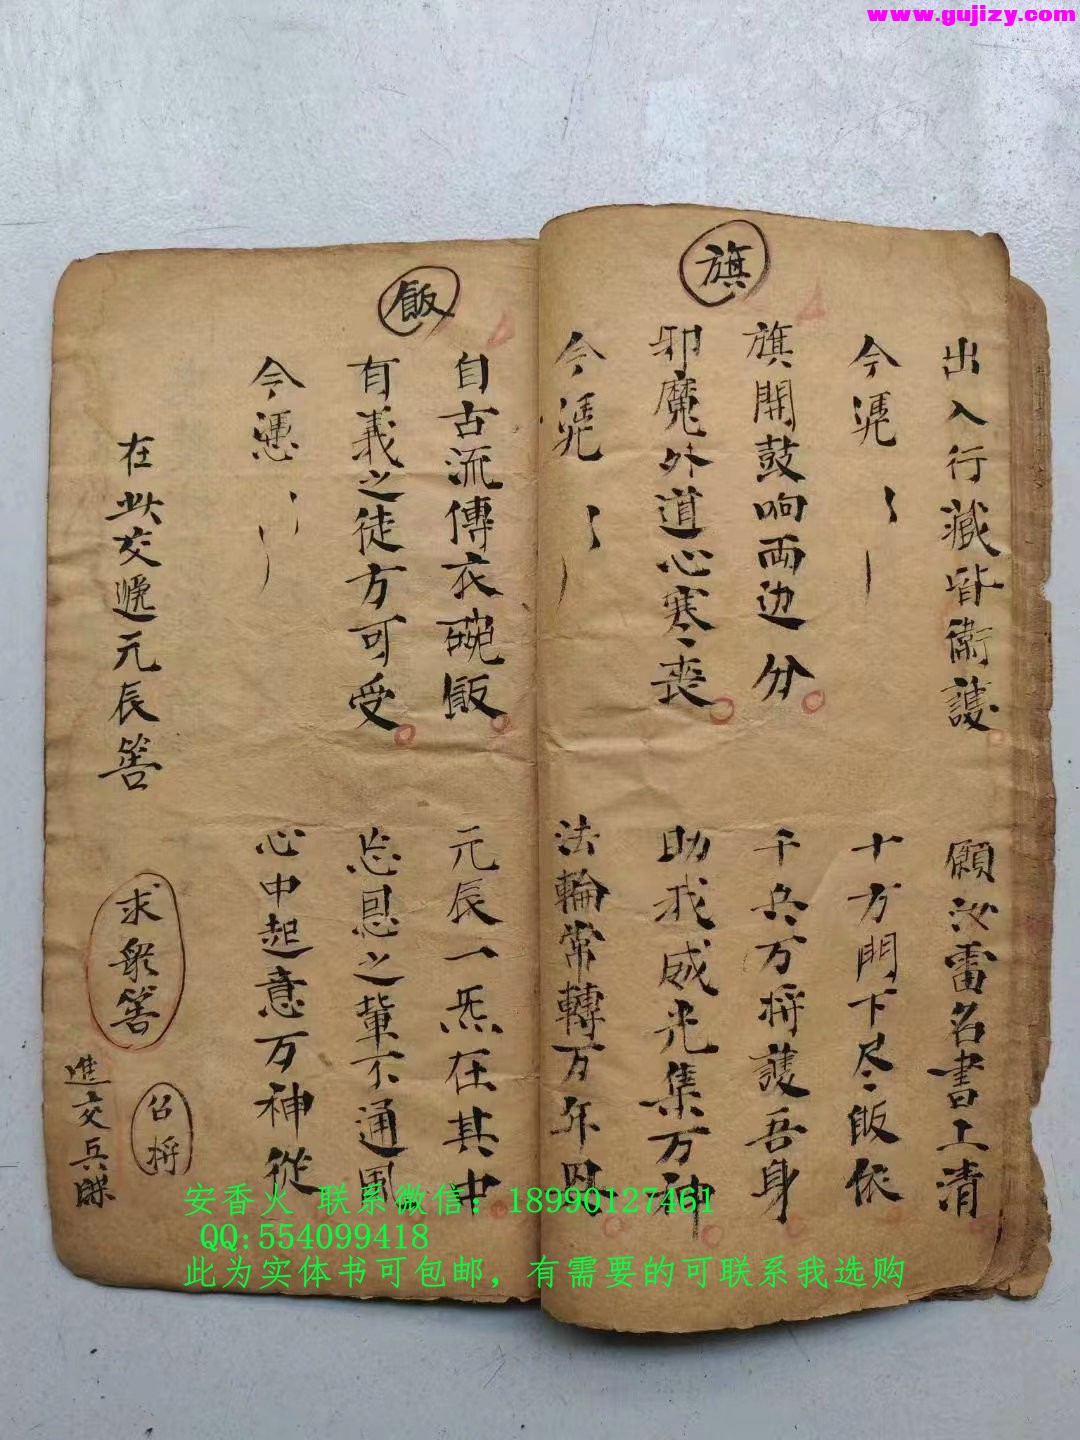 www.gujizy.com
出入行藏皆衛護
願汝雷名書上清
今㞧
十方門下尽皈依
旗
旗開鼓响两边分
千兵万将護吾身
邪魔外道心寒喪
助我威光集万神
今
法輪常轉万年
飯
自古流傳衣碗飯
元辰一炁在其中
有義之徒方可受
忘恩之輩不通風
今憑
心中起意万神從
在此交遞元辰筶
求衆筶
召将
進交兵牒
安香火 联系微信：18990127461
QQ:554099418
此为实体书可包邮，有需要的可联系我选购